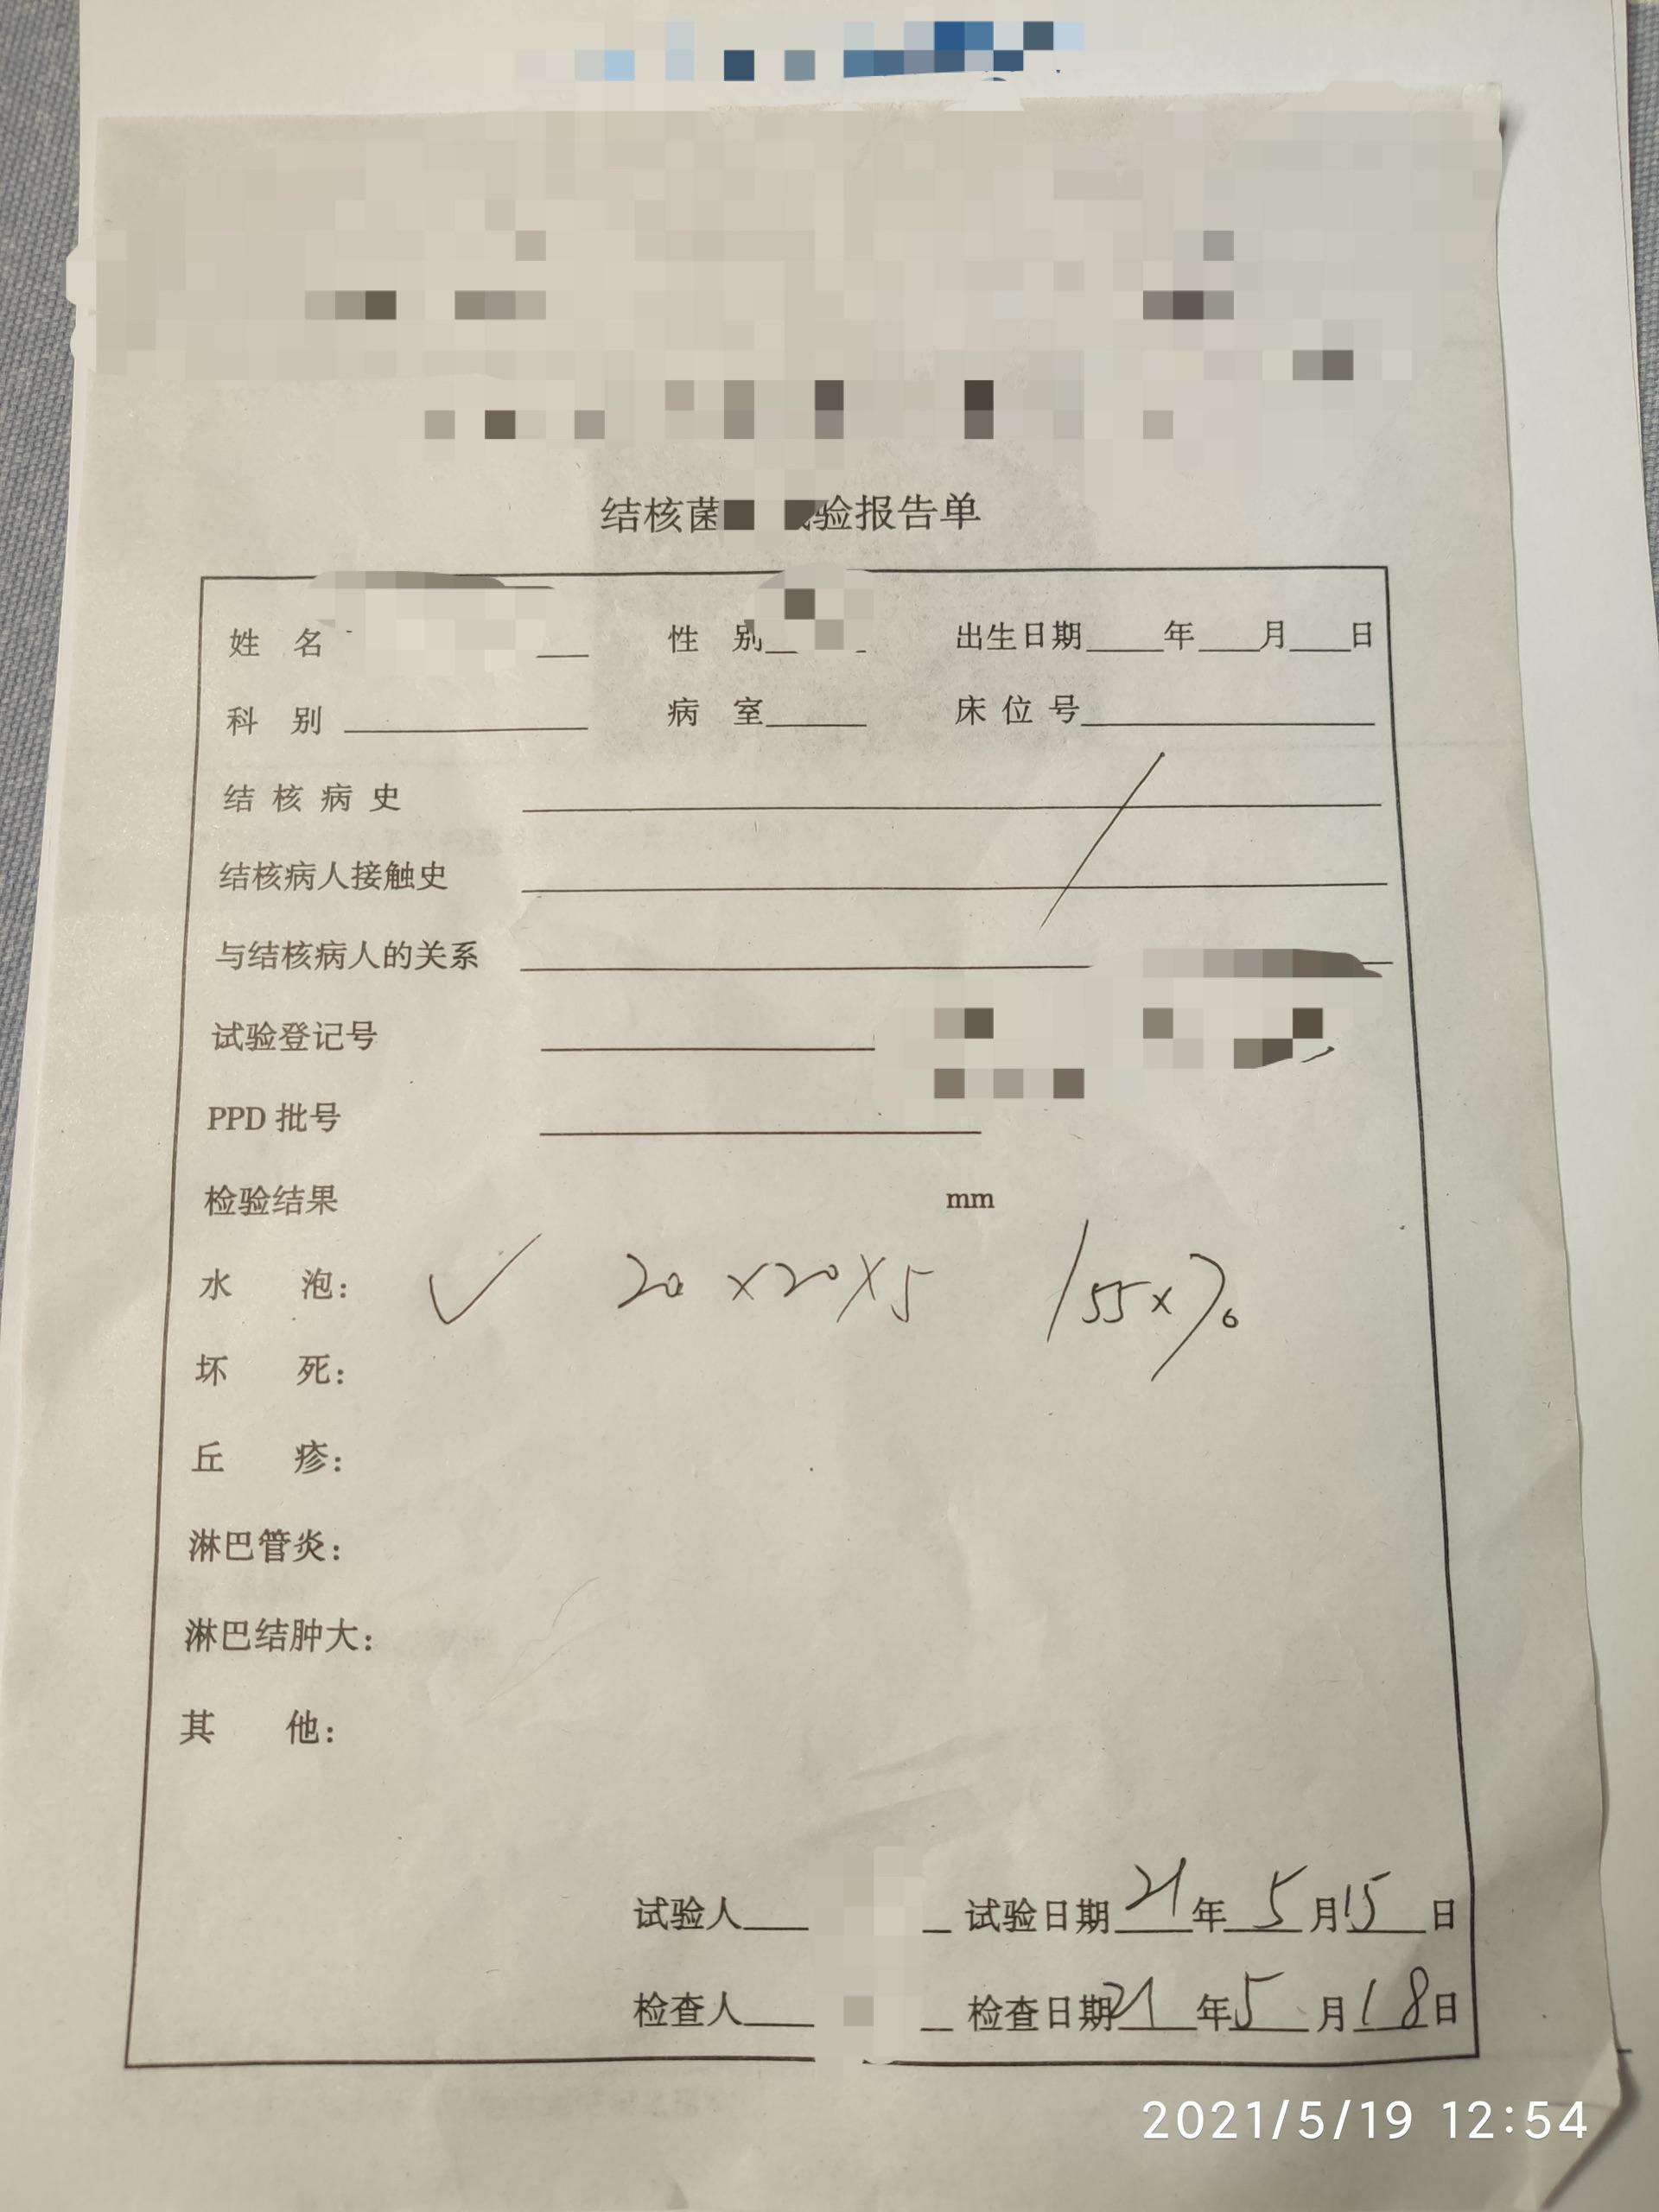 结核菌 验报告单
姓 名 性 别 出生日期 年 月 日
科 别 病 室 床 位 号
结 核 病 史
结核病人接触史
与结核病人的关系
试验登记号
PPD 批号
检验结果 mm
水 泡: ✓ 20 ×20×5 /55×70
坏 死:
丘 疹:
淋巴管炎:
淋巴结肿大:
其 他:
试验人 试验日期 21 年 5 月 15 日
检查人 检查日期 21 年 5 月 18 日
2021/5/19 12:54